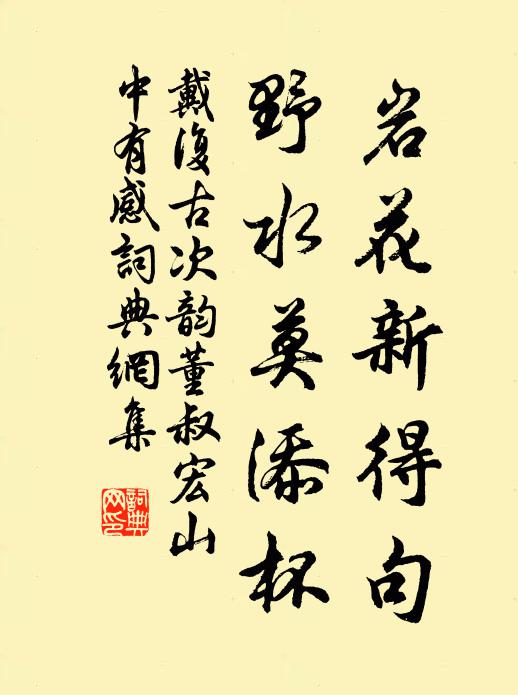 岩花新得句
野水莫添杯
戴復古次韵董叔宏山
中有感詞典網集
詞典
网印